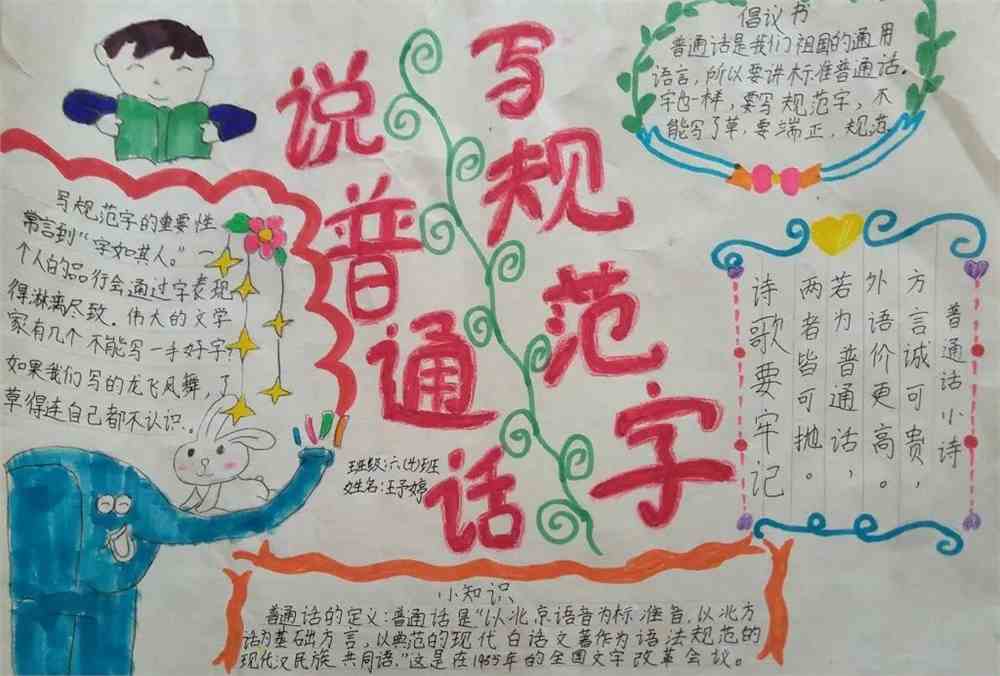 说普通话
写规范字
倡议书
普通话是我们祖国的通用
语言，所以要讲标准普通话。
字也一样，要写规范字，不
能写了草，要端正，规范
写规范字的重要性
常言到“字如其人。”一
个人的品行会通过字表现
得淋漓尽致。伟大的文学
家有几个不能写一手好字？
如果我们写的龙飞凤舞，了
草得连自己都不认识。
班级：六（4）班
姓名：王予婷
普通话小诗
方言诚可贵，
外语价更高。
若为普通话，
两者皆可抛。
诗歌要牢记
小知识
普通话的定义：普通话是“以北京语音为标准音，以北方
话为基础方言，以典范的现代白话文著作为语法规范的
现代汉民族共同语。”这是在1955年的全国文字改革会议。